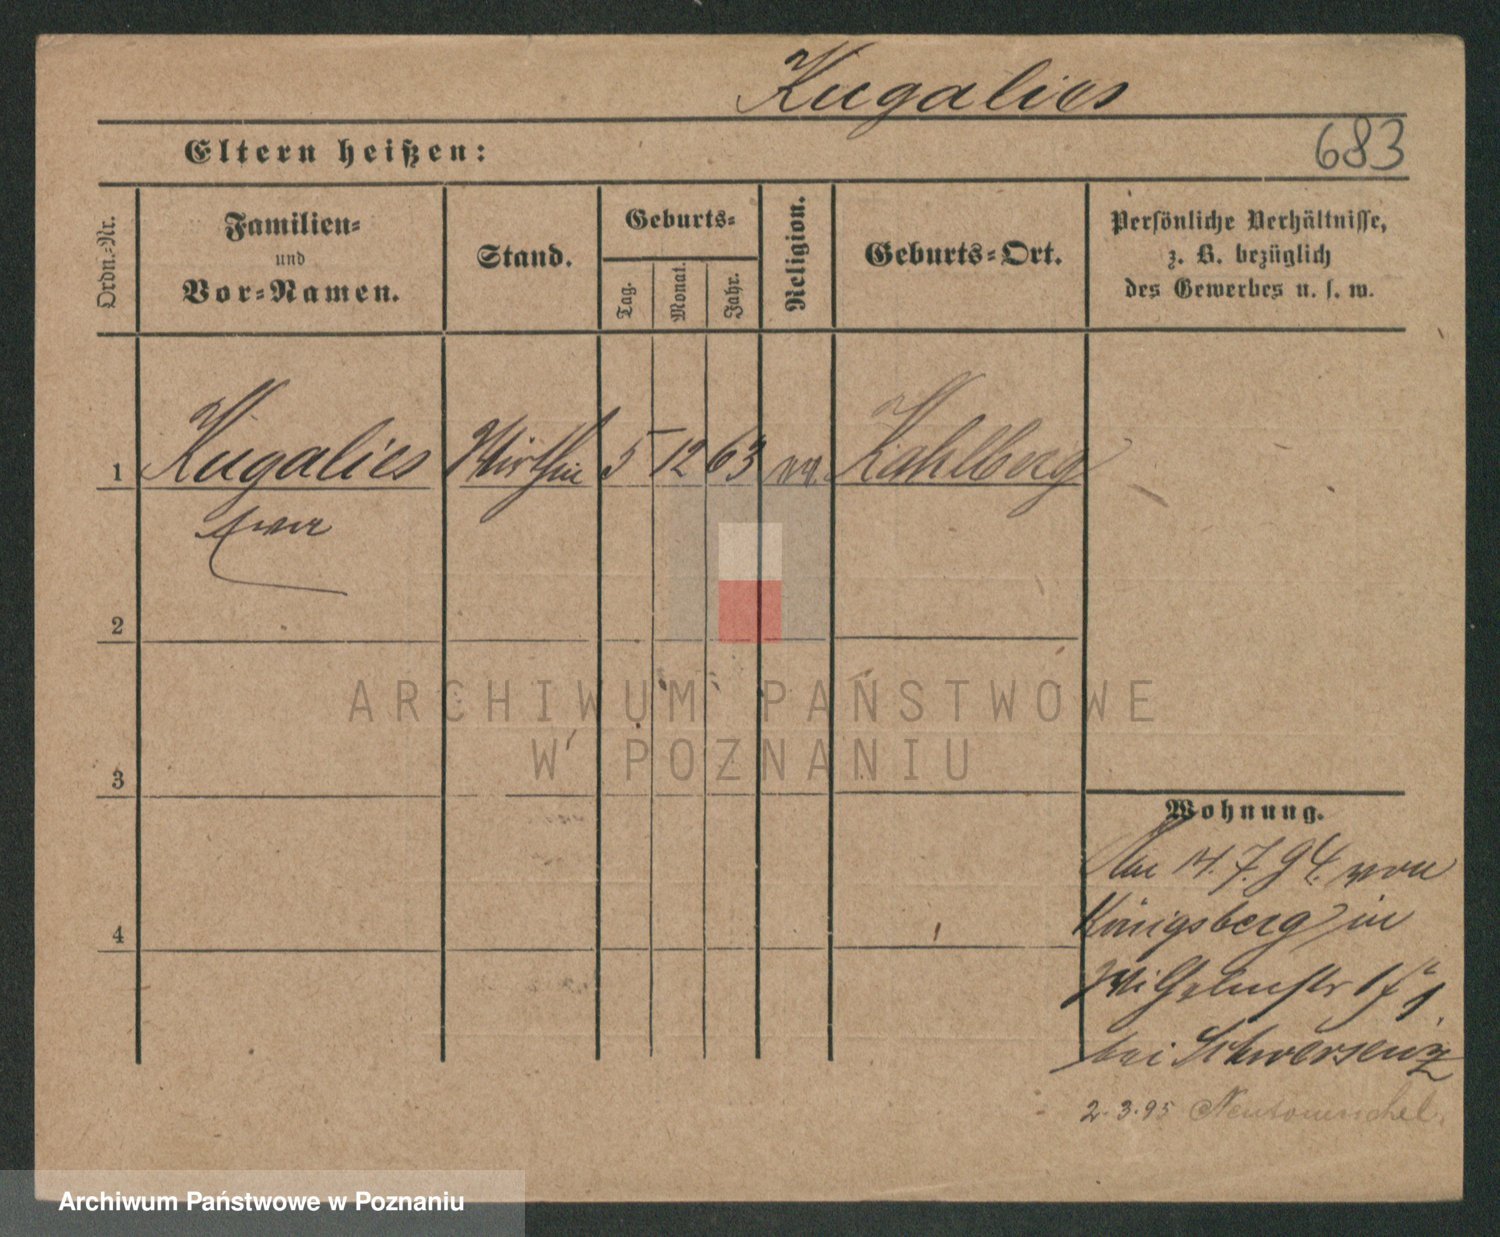 Kugalies
683
Eltern heißen:
Ordn.-Nr.
Familien-
und
Vor-Namen.
Stand.
Geburts-
Tag.
Monat.
Jahr.
Religion.
Geburts-Ort.
Persönliche Verhältnisse,
z. B. bezüglich
des Gewerbes u. s. w.
1 Kugalies Wirthin 5 12 63 Kahlberg
2
3
4
ARCHIWUM PAŃSTWOWE
W POZNANIU
Wohnung.
14. 7. 94. von
Königsberg in
Wilhelmstr 17 I.
bei Schwersenz
2.3.95 Neutomischel.
Archiwum Państwowe w Poznaniu